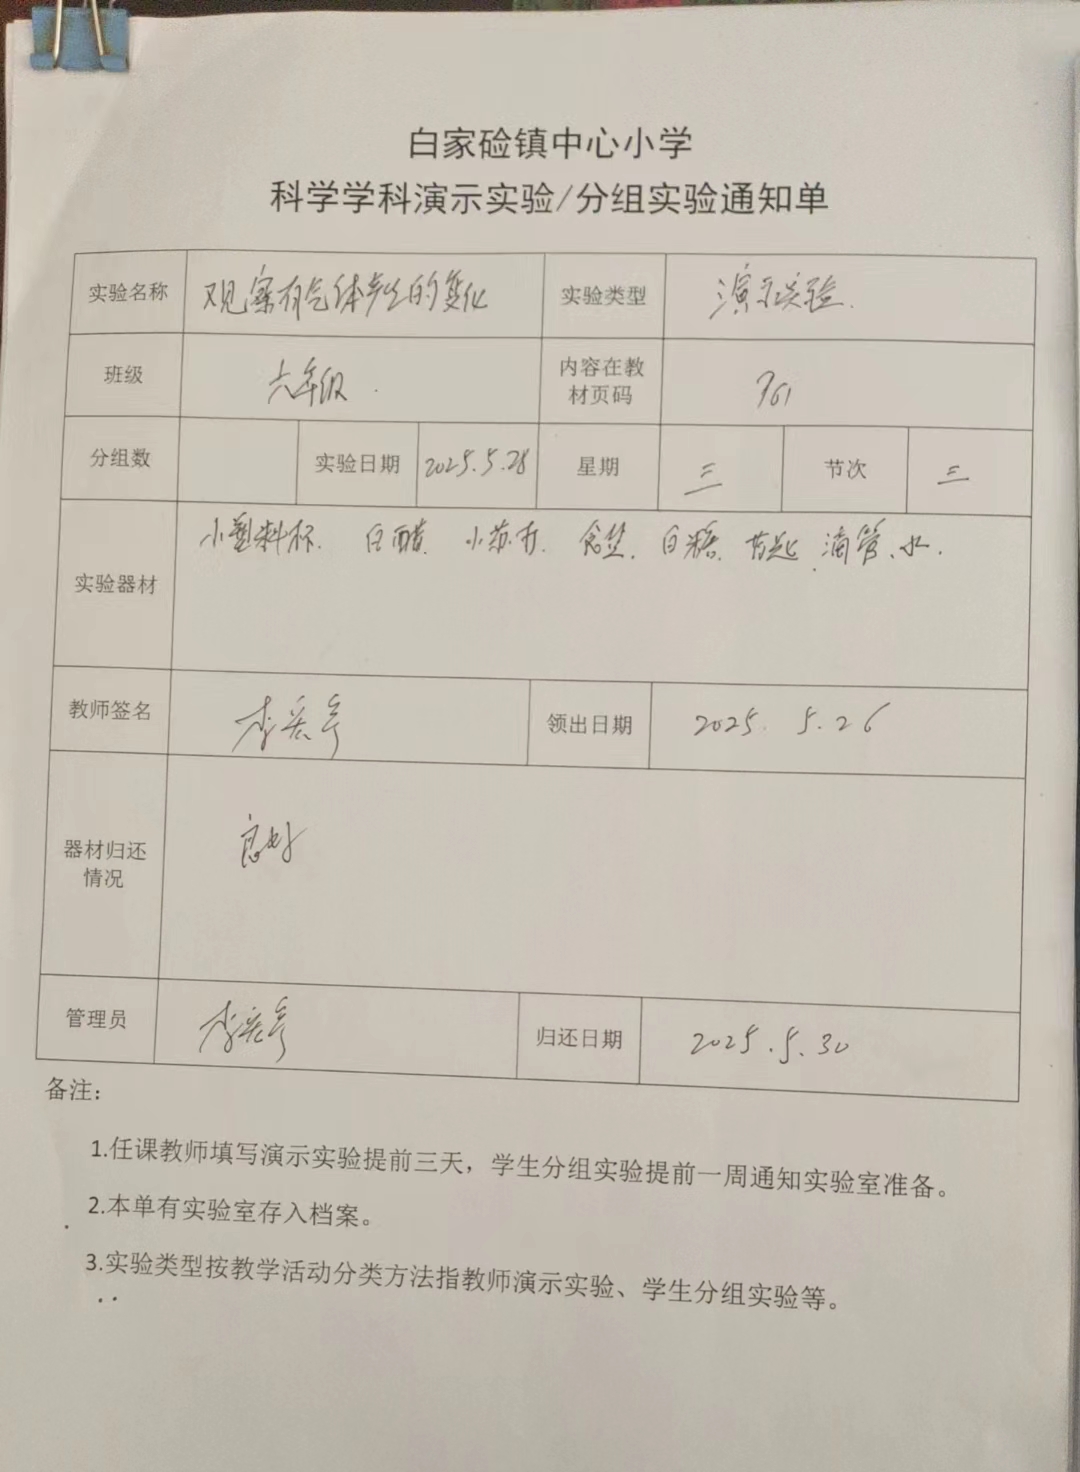 白家硷镇中心小学
科学学科演示实验/分组实验通知单
实验名称 观察有气体产生的变化 实验类型 演示实验.
班级 六年级. 内容在教材页码 P61
分组数 实验日期 2025.5.28 星期 三 节次 三
实验器材 小塑料杯. 白醋. 小苏打. 食盐. 白糖. 药匙. 滴管、水.
教师签名 李 领出日期 2025. 5.26
器材归还情况 良好
管理员 李 归还日期 2025.5.30
备注：
1.任课教师填写演示实验提前三天，学生分组实验提前一周通知实验室准备。
2.本单有实验室存入档案。
3.实验类型按教学活动分类方法指教师演示实验、学生分组实验等。